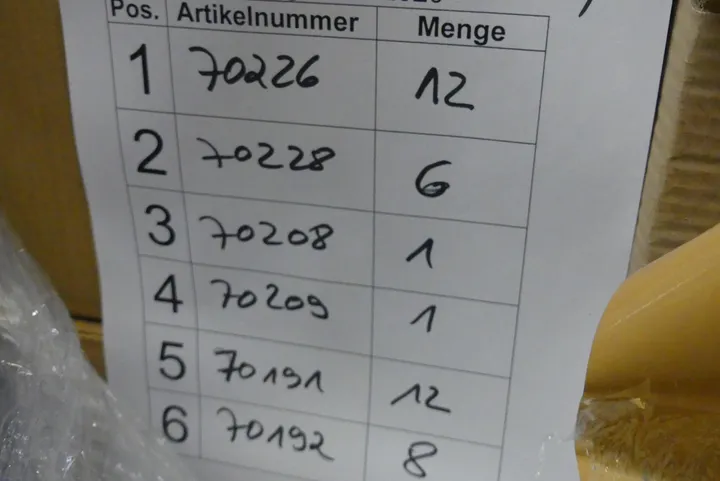 Pos. Artikelnummer Menge
1 70226 12
2 70228 6
3 70208 1
4 70209 1
5 70191 12
6 70192 8